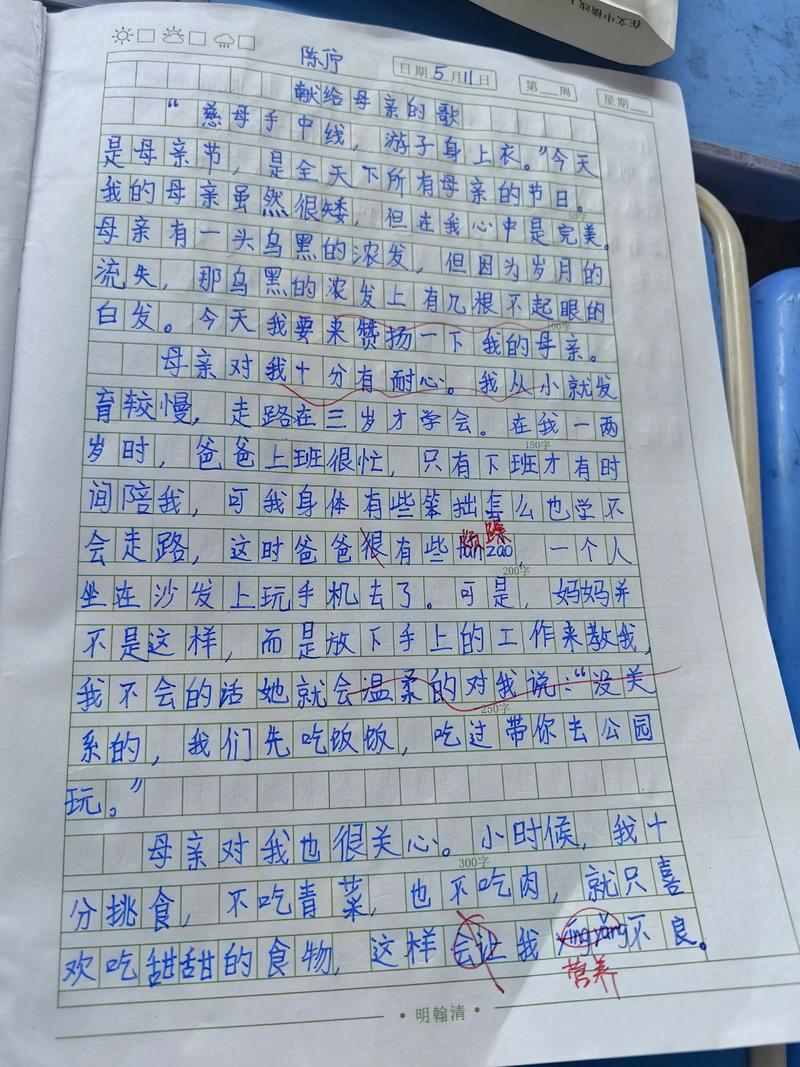 陈泞
日期 5 月 11 日 第 周 星期
献给母亲的歌
“慈母手中线，游子身上衣。”今天
是母亲节，是全天下所有母亲的节日。
我的母亲虽然很矮，但在我心中是完美。
母亲有一头乌黑的浓发，但因为岁月的
流失，那乌黑的浓发上有几根不起眼的
100字
白发。今天我要来赞扬一下我的母亲。
母亲对我十分有耐心。我从小就发
育较慢，走路在三岁才学会。在我一两
150字
岁时，爸爸上班很忙，只有下班才有时
间陪我，可我身体有些笨拙怎么也学不
会走路，这时爸爸很有些烦躁zao，一个人
200字
坐在沙发上玩手机去了。可是，妈妈并
不是这样，而是放下手上的工作来教我，
我不会的话她就会温柔的对我说：“没关
250字
系的，我们先吃饭饭，吃过带你去公园
玩。”
母亲对我也很关心。小时候，我十
300字
分挑食，不吃青菜，也不吃肉，就只喜
欢吃甜甜的食物，这样会让我yíng yǎng不良。
营养
明翰清